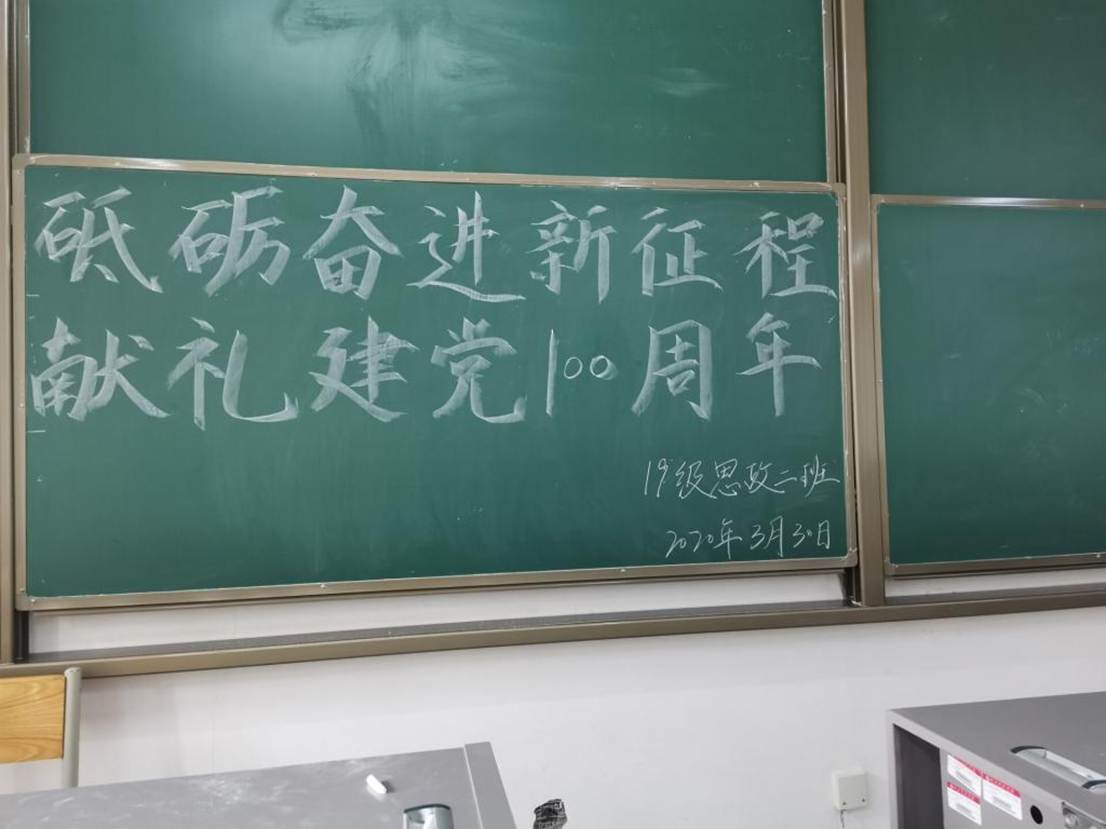 砥砺奋进新征程
献礼建党100周年
19级思政二班
2020年3月30日